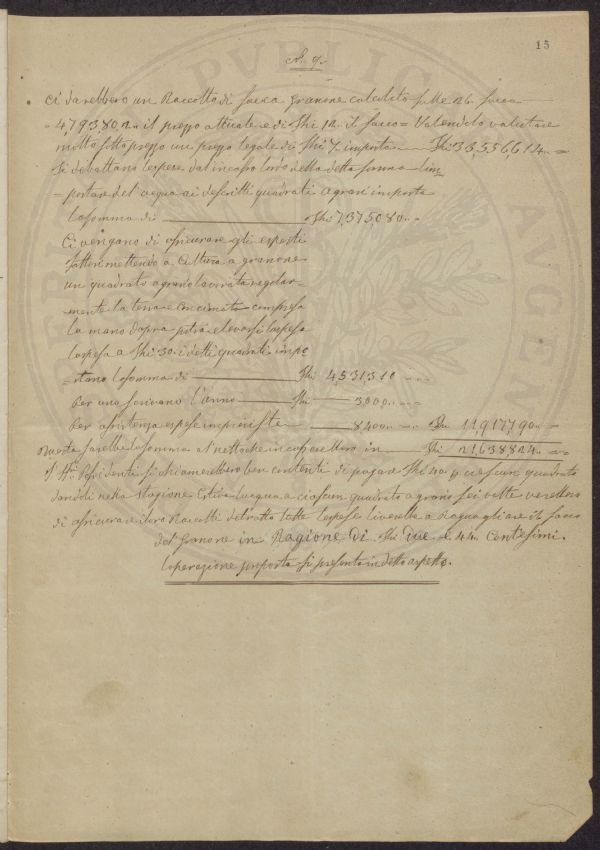 15
N. 9.
ci darebbero un Raccolto di sacca granone calcolato sulle 26. sacca
4,793,802.. il prezzo attuale e di Shi 12. il sacco = Valendolo valutare
molto sotto prezzo un prezzo legale di Shi 7. importa Shi 33,556,614.. =
Si debattano le spese dal incasso lordo della detta somma l'im=
=portare del'acqua ai descritti quadrati agrari importa
la somma di Shi 7,375,080..
Ci vengano di assicurare gli esperti
fattori mettendo a cultura a granone
un quadrato agrario lavorata regolar=
mente la terra e concimata compresa
la mano d'opra potrà elevarsi la spesa
la spesa a Shi 30. i detti quadrati impo
=rtano la somma di Shi 4531310
Per uno scrivano l'anno Shi 3,000..
Per assistenza e spese impreviste 8400.. Shi 11,917,790..
Questa sarebbe la somma al netto che incasserebbero in Shi 21,638,824.. =
I SS.i Possidenti si chiamerebbero ben contenti di pagare Shi 40 p. ciascun quadrato
dandoli nella stagione Estiva l'acqua a ciascun quadrato agrario sei volte verebbero
di assicurare i loro Raccolti detratto tutte le spese li verebbe a Raguagliare il sacco
del Granone in Ragione Di Shi due e 44 Centesimi.
L'operazione proposta si presenta in detto aspetto.